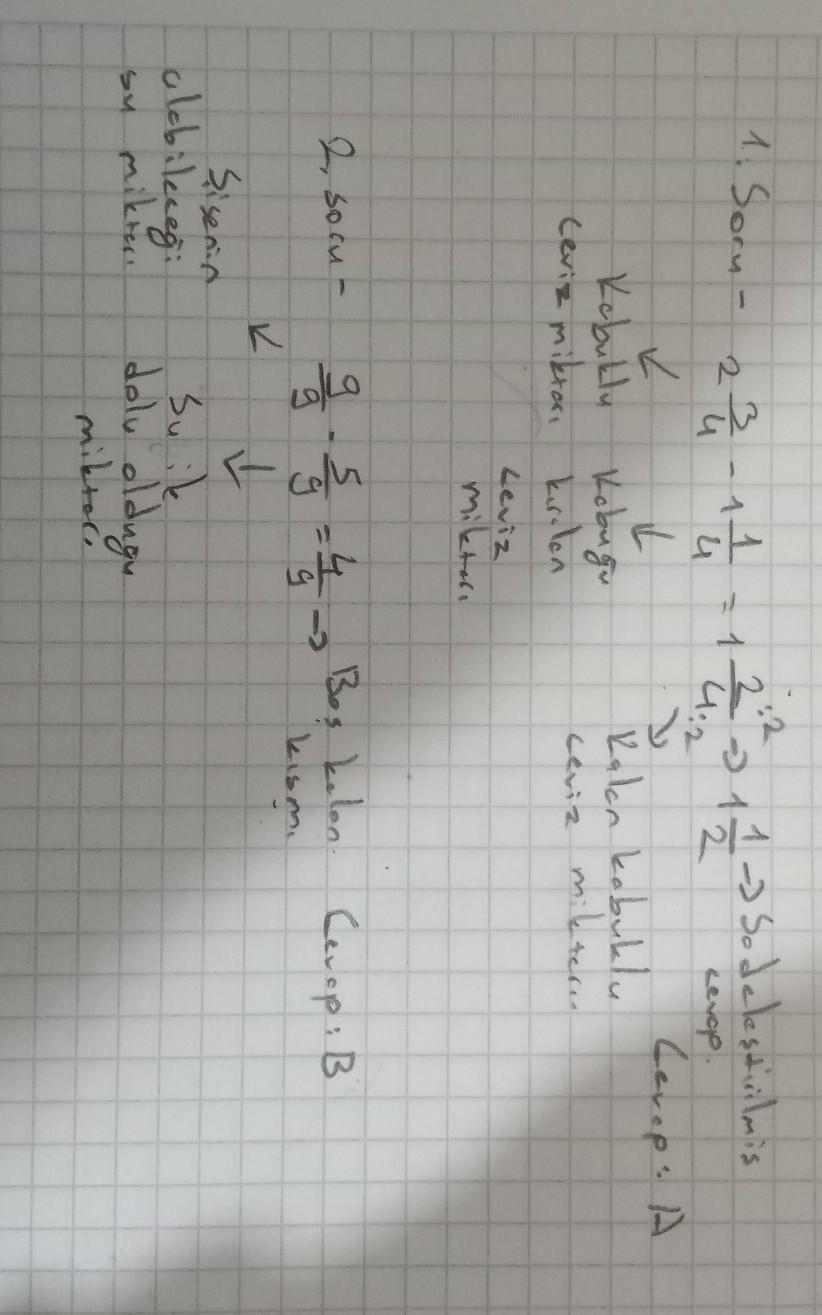 1. Soru - 2 3/4 - 1 1/4 = 1 2:2/4:2 → 1 1/2 → Sadeleştirilmiş
cevap.
↙ ↓ ↘
Kabuklu Kabuğu Kalan kabuklu
ceviz miktarı kırılan ceviz miktarı.
ceviz
miktarı
Cevap: A
2. Soru - 9/9 - 5/9 = 4/9 → Boş kalan Cevap: B
kısmı
↙ ↓
Şişenin Su ile
alabileceği dolu olduğu
su miktarı miktarı